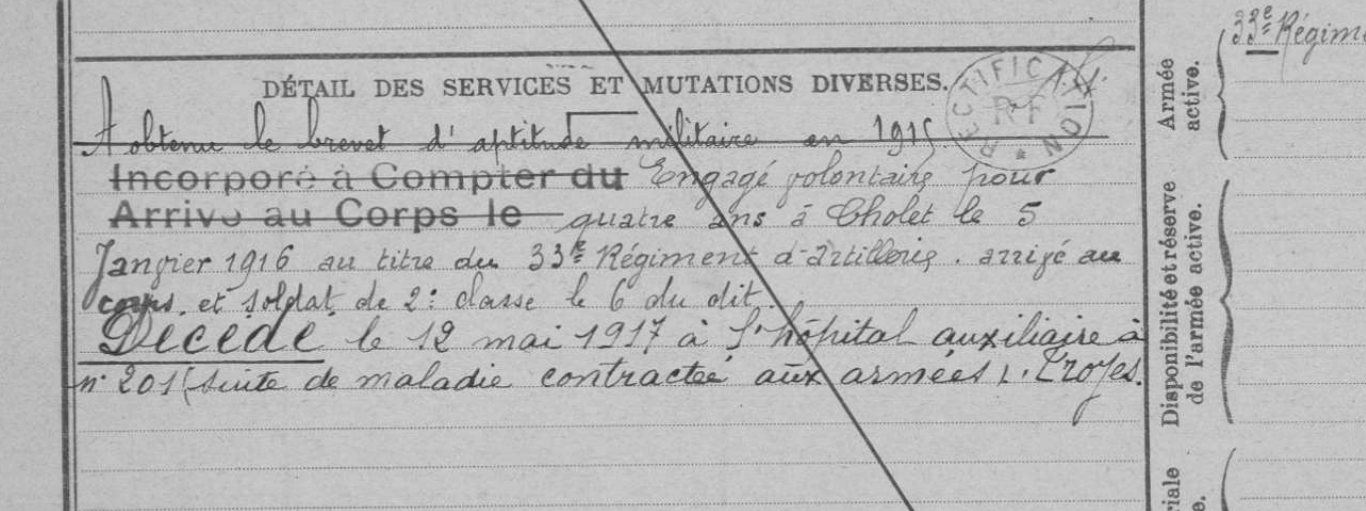 DÉTAIL DES SERVICES ET MUTATIONS DIVERSES.
RECTIFICATION
R.F.
A obtenu le brevet d'aptitude militaire en 1915
Incorporé à Compter du Engagé volontaire pour
Arrivé au Corps le quatre ans à Cholet le 5
Janvier 1916 au titre du 33e Régiment d'Artillerie. arrivé au
corps. et soldat de 2e classe le 6 du dit.
Décédé le 12 mai 1917 à l'hôpital auxiliaire à
n° 201 (suite de maladie contractée aux armées). Troyes.
33e Régime
Armée
active.
Disponibilité et réserve
de l'armée active.
riale
e.